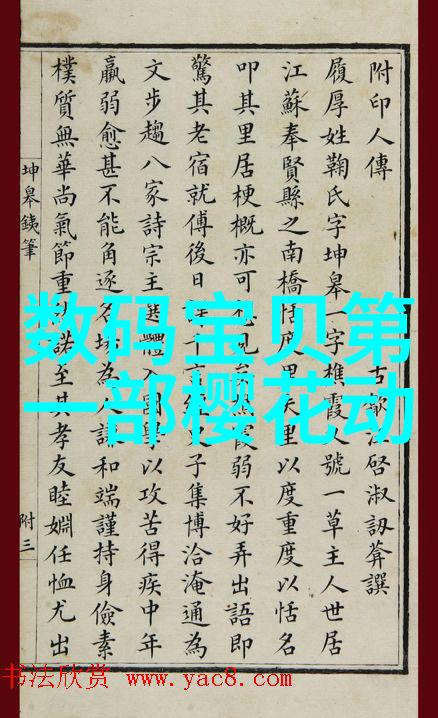 附印人傳
古歙汪啓淑訒葊譔
履厚姓鞠氏字坤皋一字樵霞又號一草主人世居
江蘇奉賢縣之南橋恬度里里以度重度以恬名
叩其里居梗概亦可見霞弱不好弄出語即
驚其老宿就傅後日千言經子集博洽淹通為
文步趨八家詩宗主選體入國學以攻苦得疾中年
羸弱愈甚不能角逐名場為人謙和端謹持身儉素
樸質無華尚氣節重諾至其孝友睦婣任恤尤出
坤皋鐵筆
附三
数码宝贝第
一部樱花动
书法欣赏 www.yac8.com